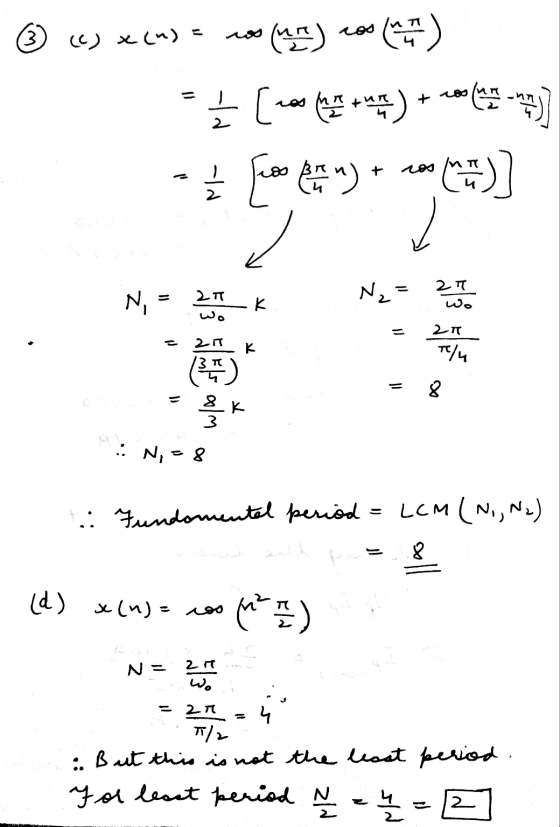 ③ (c) x(n) = cos (nπ/2) cos (nπ/4)
= 1/2 [cos (nπ/2 + nπ/4) + cos (nπ/2 - nπ/4)]
= 1/2 [cos (3π/4 n) + cos (nπ/4)]
N₁ = 2π/ω₀ K
= 2π/(3π/4) K
= 8/3 K
∴ N₁ = 8
N₂ = 2π/ω₀
= 2π/π/4
= 8
∴ Fundomental period = LCM (N₁, N₂)
= 8
(d) x(n) = cos (n² π/2)
N = 2π/ω₀
= 2π/π/2 = 4
∴ But this is not the least period.
For least period N/2 = 4/2 = 2